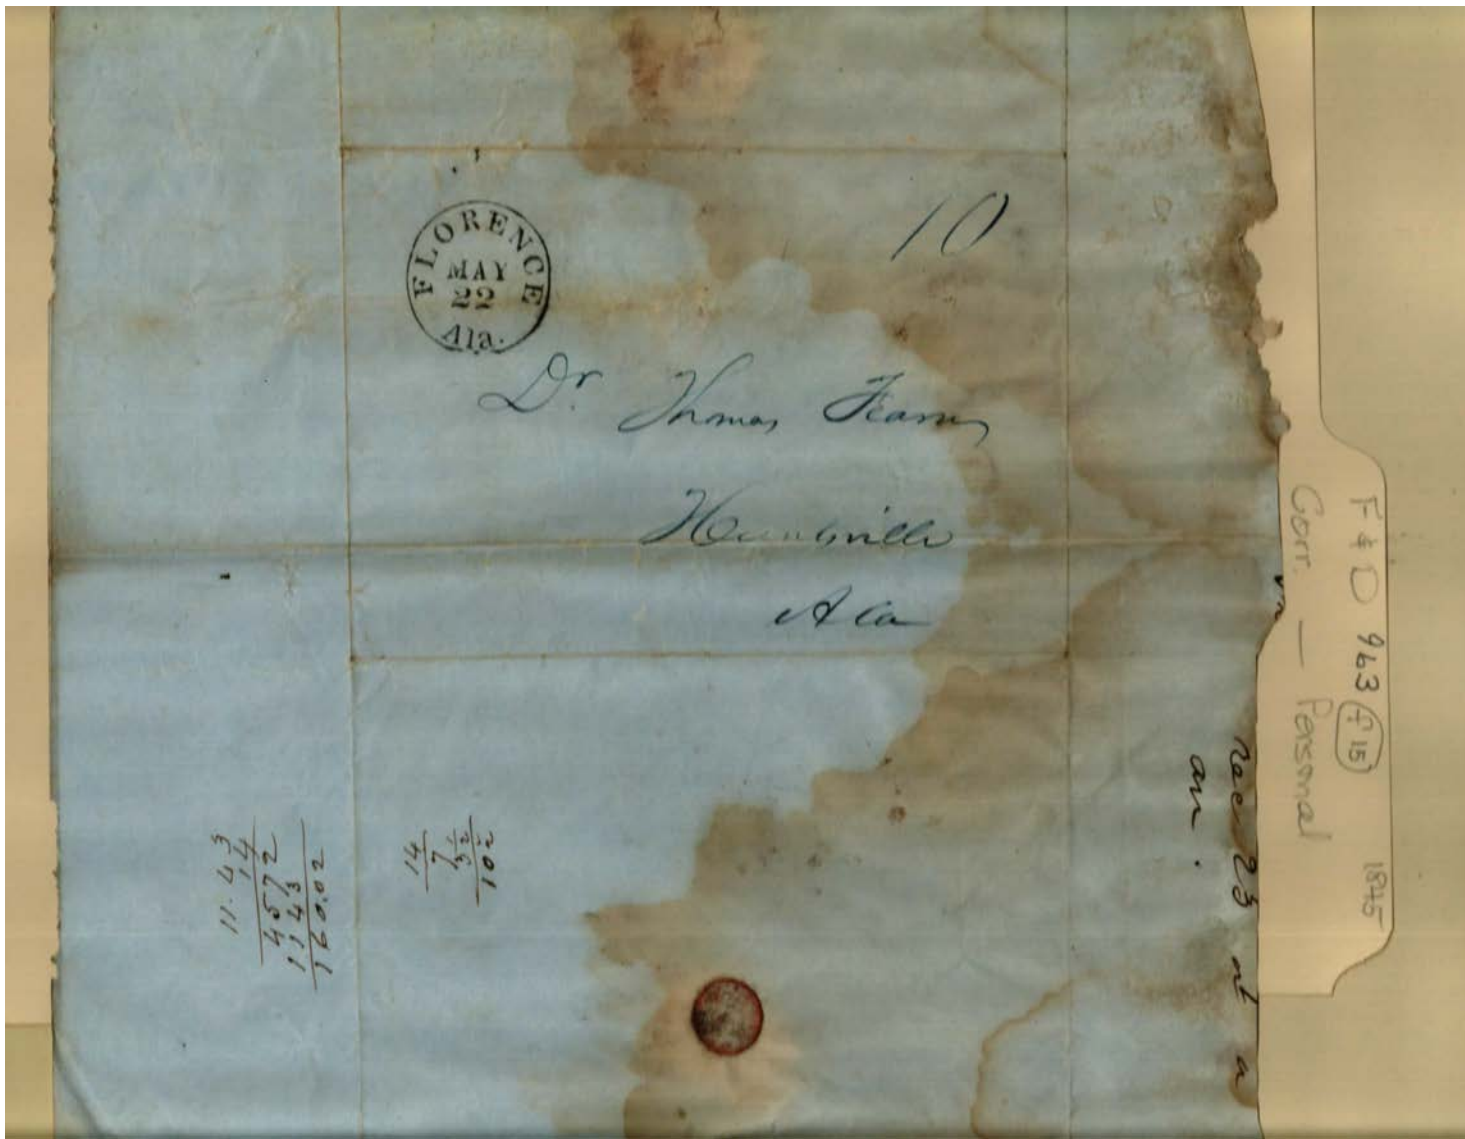 FLORENCE
MAY
22
Ala.
10
Dr. Thomas Fearn
Huntsville
Ala
11.43
14
4572
1143
160.02
14
7
3 1/2
10 1/2
23
an.
F & D 963 F 15 1845
Corr. — Personal